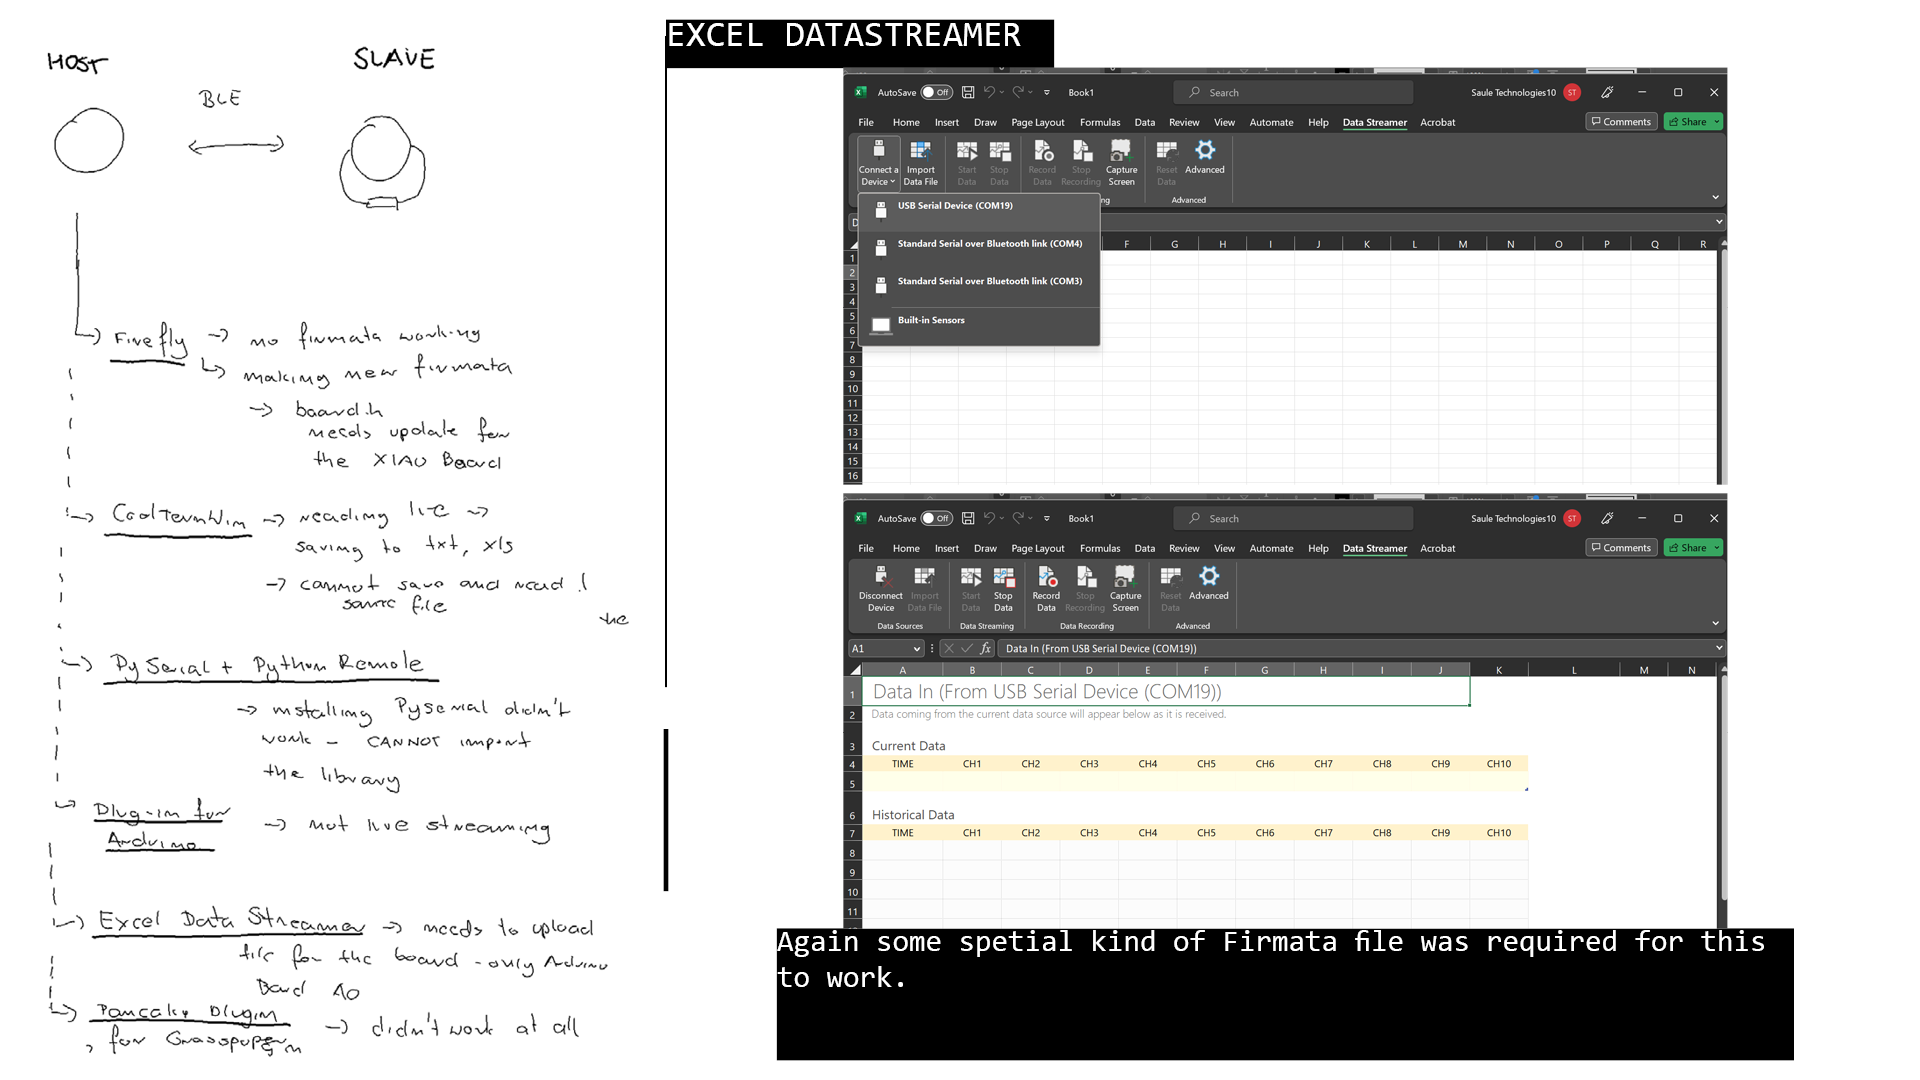 HOST
SLAVE
BLE
Firefly → no firmata working
↳ making new firmata
→ board.h
needs update for
the XIAO Board
CoolTermWin → reading live →
saving to txt, xls
→ cannot save and read !
same file
the
PySerial + Python Remote
→ installing Pyserial didn't
work - CANNOT import
the library
Plug-in for
Arduino → not live streaming
Excel Data Streamer → needs to upload
file for the board - only Arduino
Board
Plugin
for → didn't work at all
EXCEL DATASTREAMER
AutoSave Off Book1 Search Saule Technologies10 ST
File Home Insert Draw Page Layout Formulas Data Review View Automate Help Data Streamer Acrobat Comments Share
Connect a Import Start Stop Record Stop Capture Reset Advanced
Device Data File Data Data Data Recording Screen Data
ng Advanced
USB Serial Device (COM19)
Standard Serial over Bluetooth link (COM4)
Standard Serial over Bluetooth link (COM3)
Built-in Sensors
F G H I J K L M N O P Q R
1
2
3
4
5
6
7
8
9
10
11
12
13
14
15
16
AutoSave Off Book1 Search Saule Technologies10 ST
File Home Insert Draw Page Layout Formulas Data Review View Automate Help Data Streamer Acrobat Comments Share
Disconnect Import Start Stop Record Stop Capture Reset Advanced
Device Data File Data Data Data Recording Screen Data
Data Sources Data Streaming Data Recording Advanced
A1 fx Data In (From USB Serial Device (COM19))
A B C D E F G H I J K L M N
1 Data In (From USB Serial Device (COM19))
2 Data coming from the current data source will appear below as it is received.
3 Current Data
4 TIME CH1 CH2 CH3 CH4 CH5 CH6 CH7 CH8 CH9 CH10
5
6 Historical Data
7 TIME CH1 CH2 CH3 CH4 CH5 CH6 CH7 CH8 CH9 CH10
8
9
10
11
Again some spetial kind of Firmata file was required for this
to work.